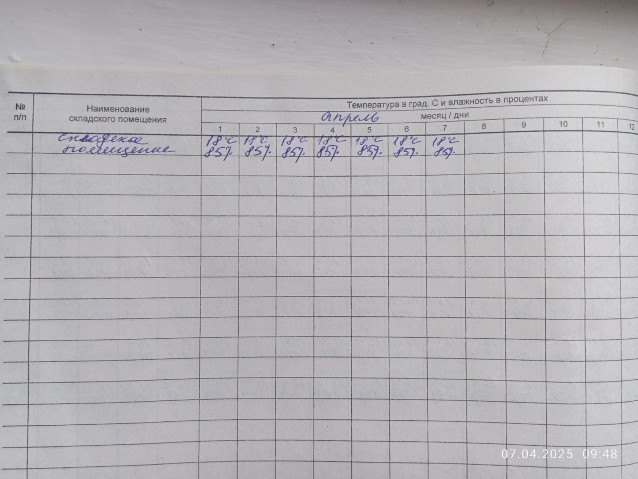 Температура в град. С и влажность в процентах
№ п/п
Наименование складского помещения
апрель месяц / дни
1 2 3 4 5 6 7 8 9 10 11 12
складское 18°С 18°С 18°С 18°С 18°С 18°С 18°С
помещение 85% 85% 85% 85% 85% 85% 85%
07.04.2025 09:48